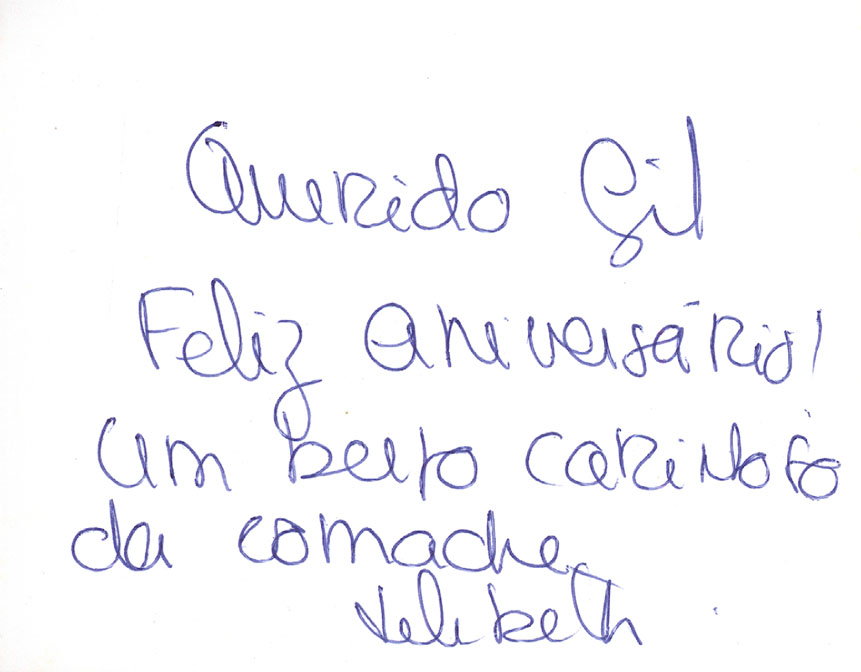 Querido Gil
Feliz aniversário!
um beijo carinhoso
da comadre